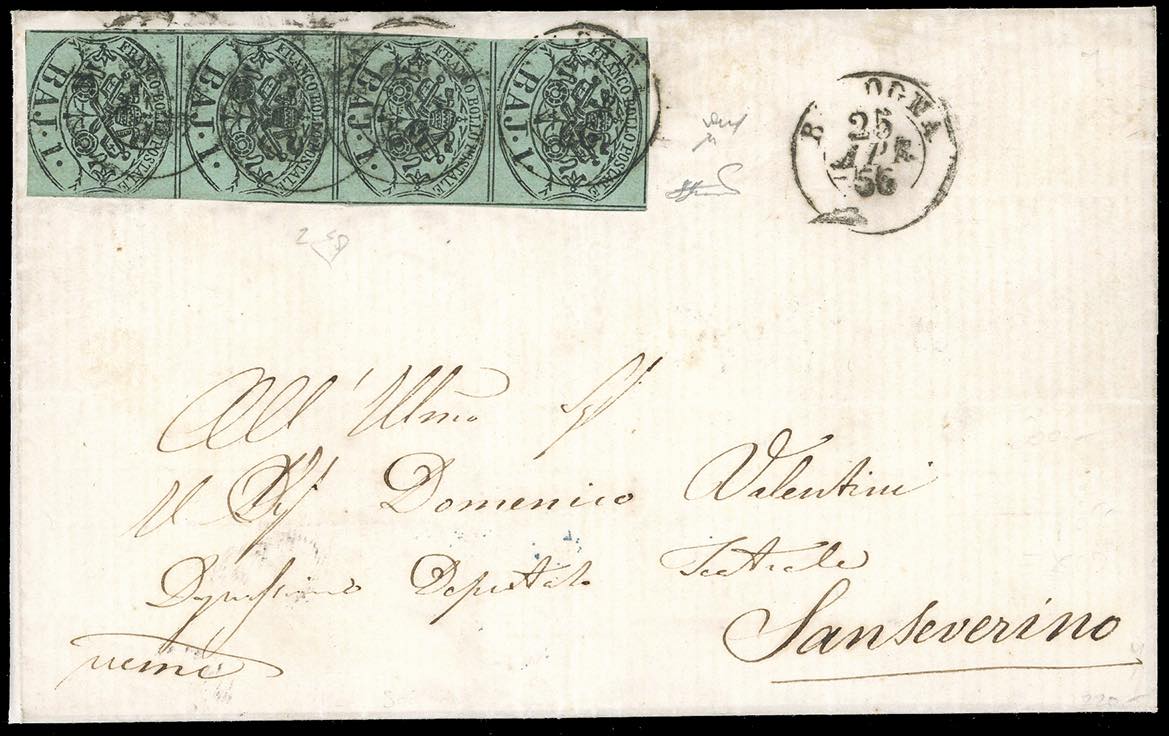 FRANCO BOLLO POSTALE
1 BAJ.
FRANCO BOLLO POSTALE
1 BAJ.
FRANCO BOLLO POSTALE
1 BAJ.
FRANCO BOLLO POSTALE
1 BAJ.
B OGNA
25
APR
56
All' Illmo Sigr
Il Sigr Domenico Valentini
Degnissimo Deputato Teatrale
Sanseverino